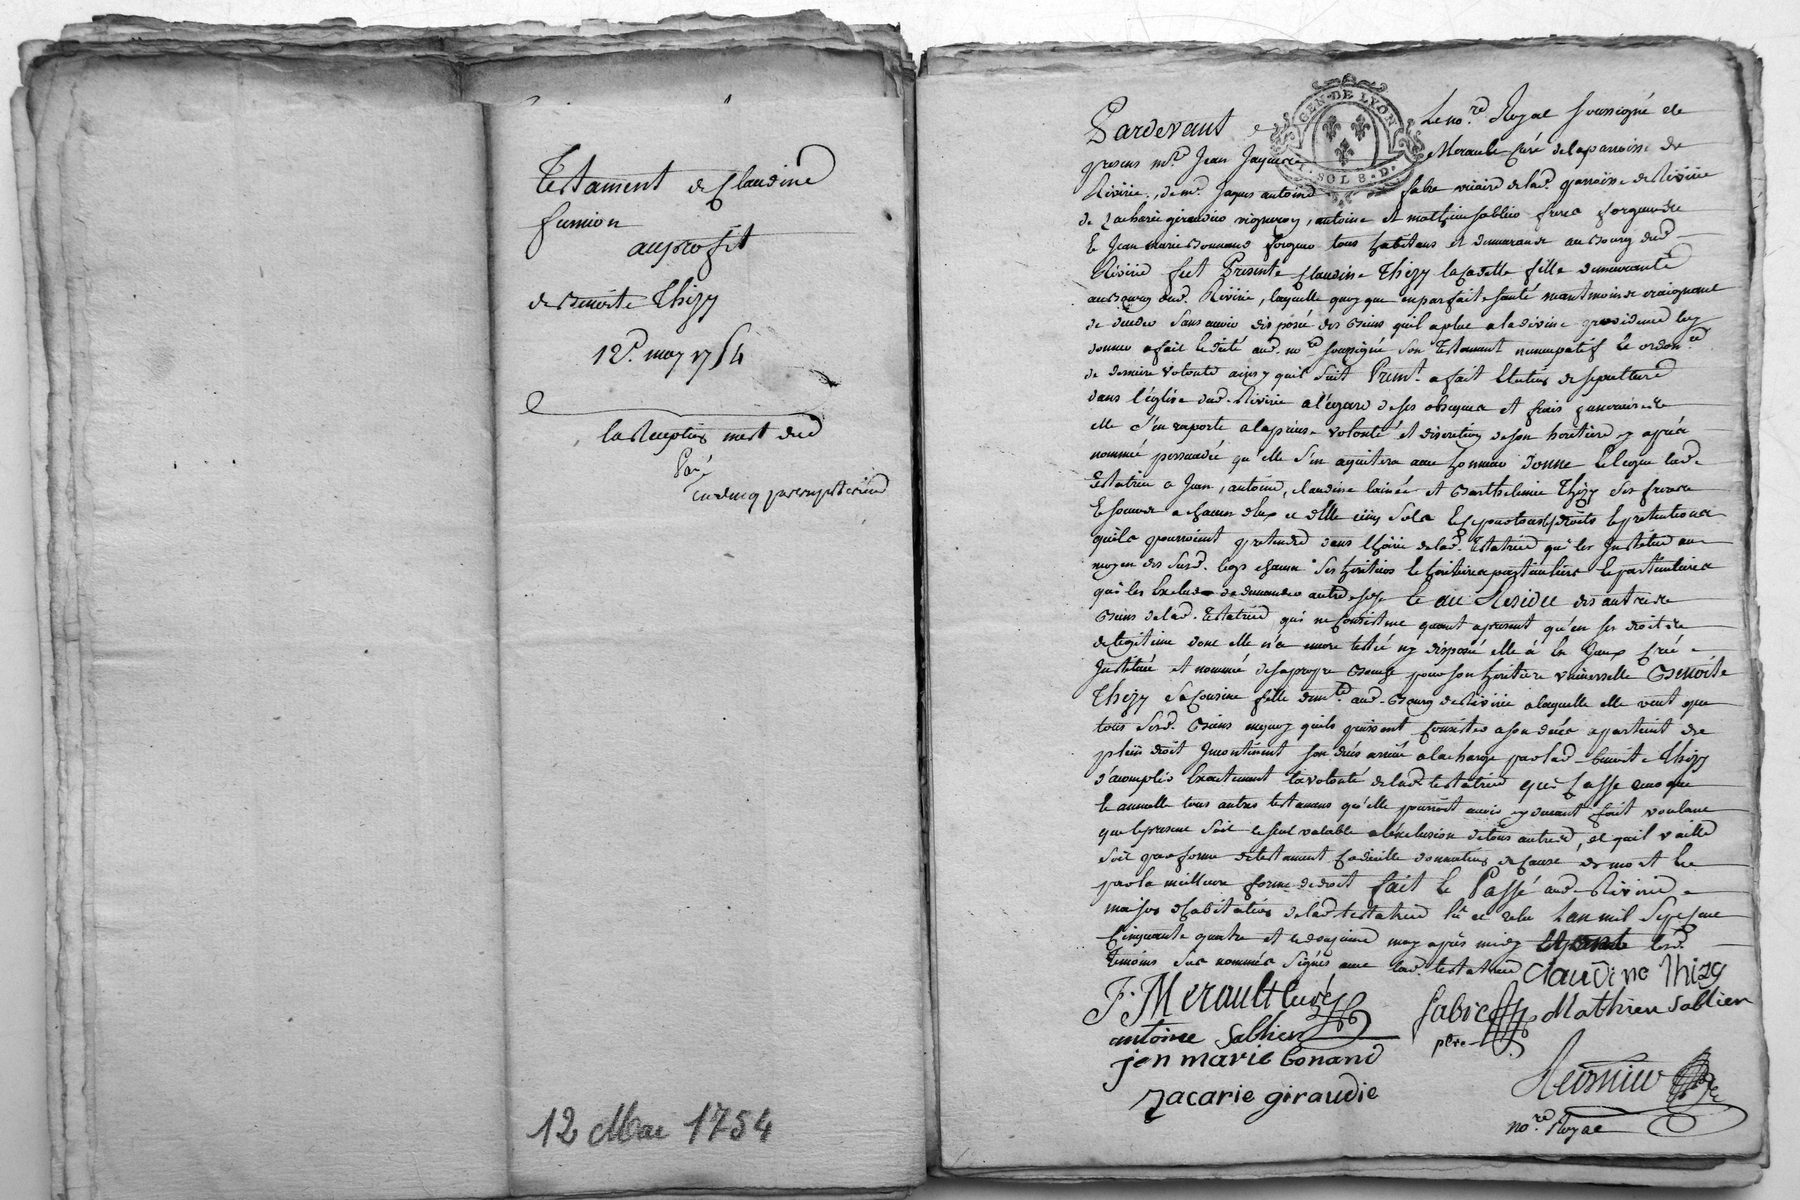 Testament de Claudine
fumion
au profit
de Benoite Thizy
12e. may 1754
la Reception n'est due
Par
12 Mai 1754
GEN. DE LYON
SOLS 8 D.
Pardevant Le no.re Royal soussigné et
presens m.re Jean Jaques Merault curé de la parroisse de
Rivirie, de m.e Jaques antoine fabre vicaire de lad. parroisse de Rivirie
de Zacharie giraudier vigneron, antoine et mathieu sablier freres forgeurs
Et Jean marie Bonnand forgeur tous habitans et demeurants au Bourg dud.
Rivirie fut Presente Claudine Thizy la cadette fille demeurante
au Bourg dud. Rivirie, laquelle quoy que en parfaite santé neantmoins craignant
de deceder sans avoir disposé des Biens qu'il a plu a la divine providence luy
donner a fait et dicté aud. no.re soussigné son Testament nuncupatif et ordon.ce
de derniere volonté ainsy quil suit Prem.t a fait Election de sepulture
dans l'église dud. Rivirie a l'egard de ses obseques et frais funeraires
elle s'en raporte a la prise volonté et discretion de son heritiere cy après
nommée persuadée qu'elle s'en aquitera avec honneur Donne et legue lad.
testatrice a Jean, antoine, claudine l'ainée et Barthelemie Thizy ses freres
et soeurs a chacun d'eux et d'elle cinq sols droits et pretentions
qu'ils pourroient pretendre dans l'hoirie de lad. testatrice qu'les Institue au
moyen des susd. legs chacun ses heritiers et heritieres particuliers et particulieres
qu'les Exclud de demander autre chose Et au Residu des autres
Biens de lad. testatrice qui ne consistent quant a present qu'en ses droits
de legitime dont elle n'a encore testé ny disposé elle a
Institué et nommé de sa propre Bouche pour son heritiere universelle Benoite
Thizy sa cousine fille dem.te aud. Bourg de Rivirie a laquelle elle veut que
tous sesd. Biens en quoy quils puissent consister a son decès appartient de
plein droit Incontinent son decès arrivé a la charge par lad. benoite Thizy
d'acomplir Exactement la volonté de lad. testatrice qui Casse revoque
Et annulle tous autres testamens qu'elle pourroit avoir cy devant fait voulant
que le present soit le seul valable a l'exclusion de tous autres, et qu'il vaille
soit par forme de testament codicille donnation a cause de mort
par la meilleure forme de droit fait Et Passé aud. Rivirie
maison d'habitation de lad. testatrice lu et relu L'an mil Sept Cent
Cinquante quatre et le douzieme may après midy lesd.
temoins sus nommés signés avec lad. testatrice Claudine Thizy
F. Merault curé fabre Mathieu sablier
antoine sablier ptre
jan marie bonand
zacarie giraudie
no.re Royal